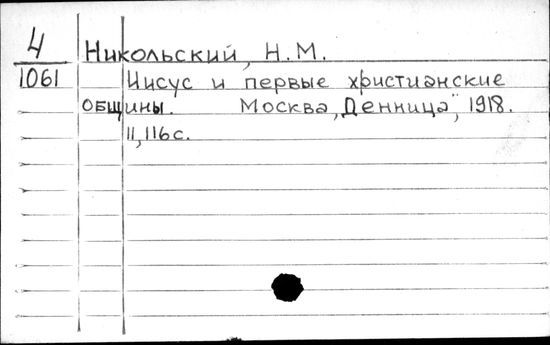 4
1061
Никольский, Н.М.
Иисус и первые христианские
общины. Москва, „Денница", 1918.
II, 116 с.